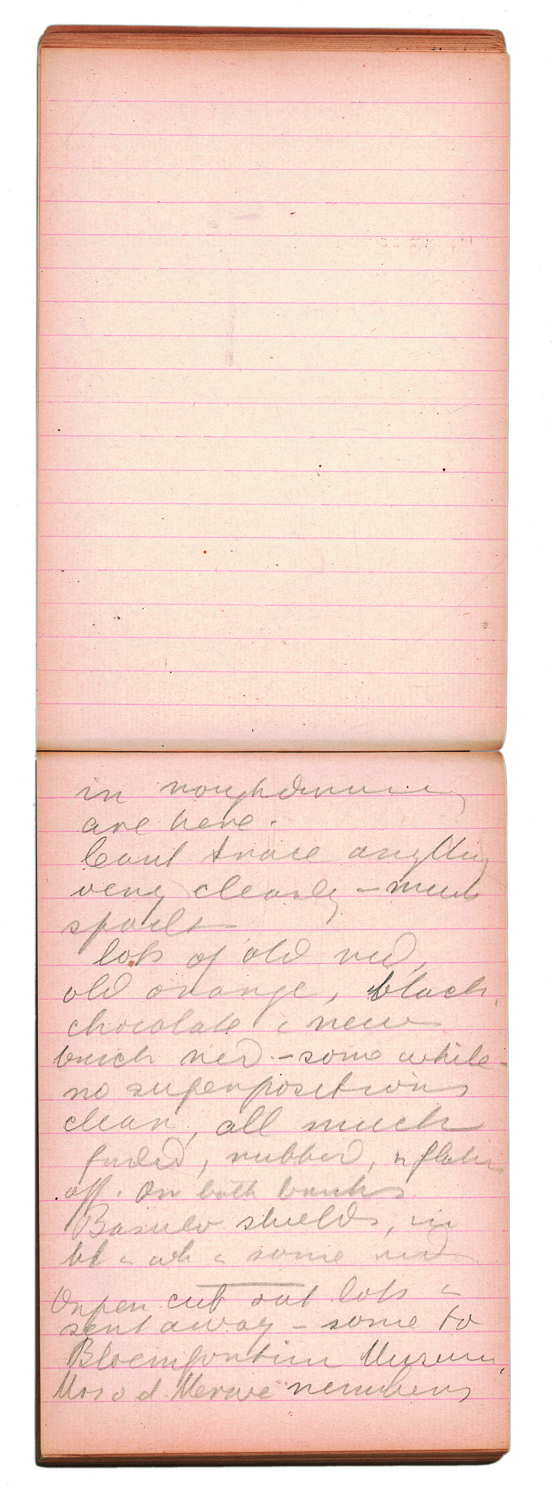 in
are here.
Cant trace anything
very clearly – much
spoilt
lots of old red,
old orange, black,
chocolate & new
brick red – some white –
no superpositions
clear, all much
faded, rubbed, & flaked
off. On both banks
Basuto shields, in
bl & wh & some red
Orpen cut out lots &
sent away – some to
Bloemfontein Museum,
Mrs v d Merwe remembers